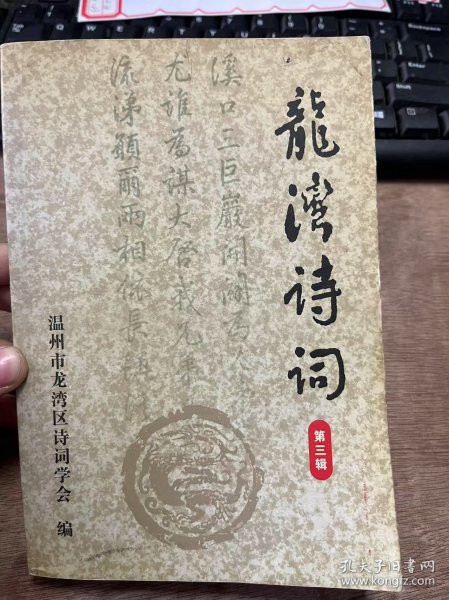 龍灣诗词
第三辑
溪口三巨巖開闢為
尤谁為謀大啓我元
流涕願爾兩相依長
温州市龙湾区诗词学会 编
孔夫子旧书网
www.kongfz.com